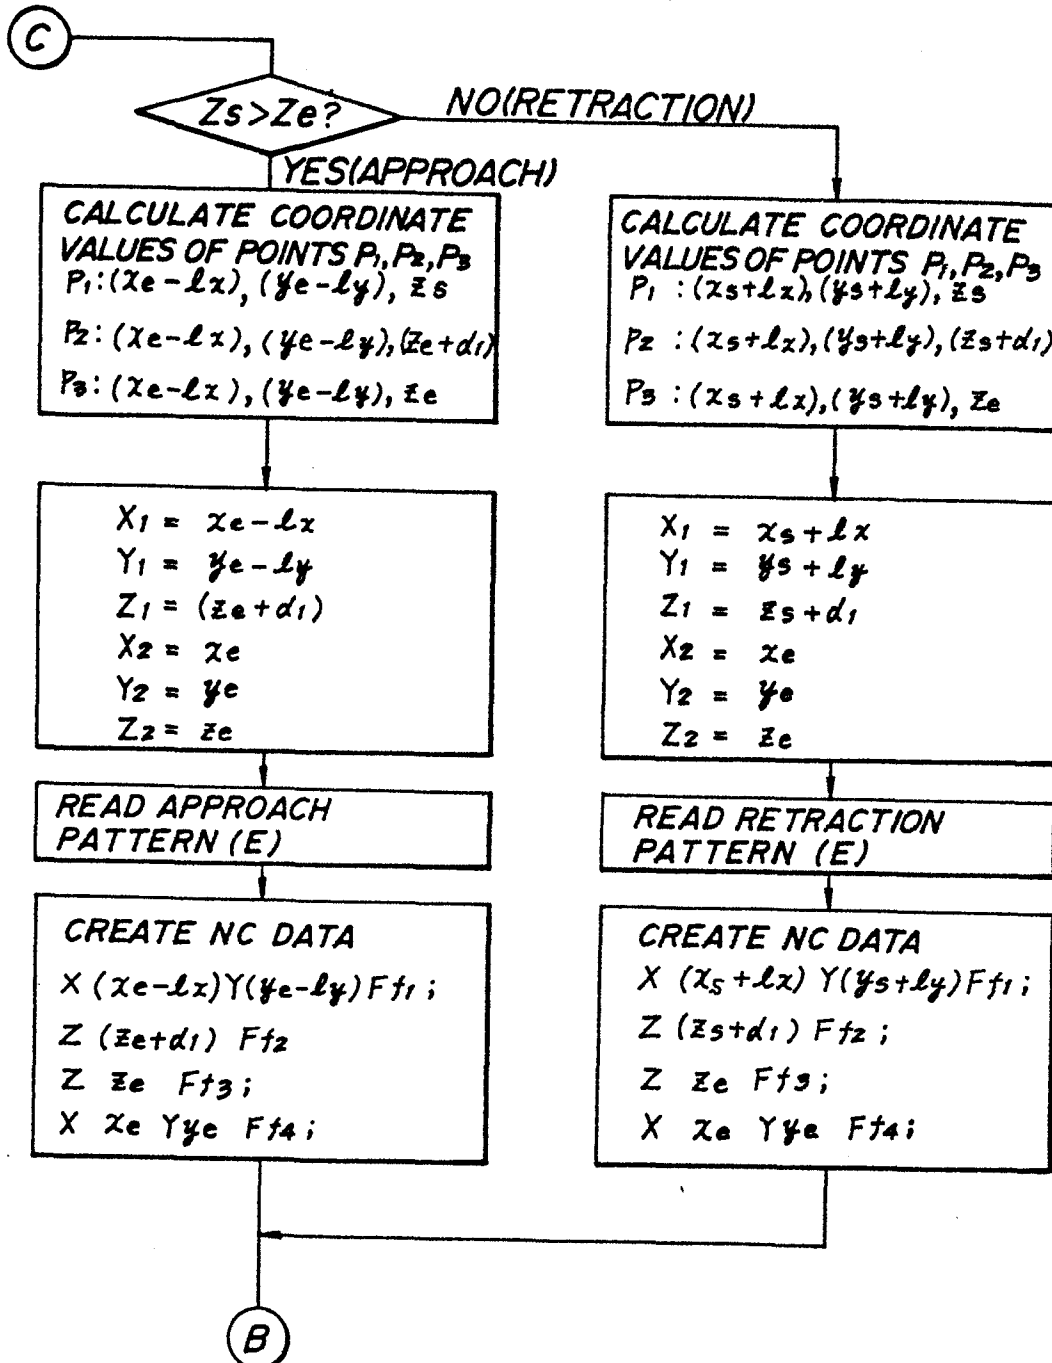 C
Zs>Ze?
NO(RETRACTION)
YES(APPROACH)
CALCULATE COORDINATE
VALUES OF POINTS P1,P2,P3
P1:(xe-lx),(ye-ly),zs
P2:(xe-lx),(ye-ly),(ze+d1)
P3:(xe-lx),(ye-ly),ze
X1 = xe-lx
Y1 = ye-ly
Z1 = (ze+d1)
X2 = xe
Y2 = ye
Z2 = ze
READ APPROACH
PATTERN (E)
CREATE NC DATA
X (xe-lx)Y(ye-ly)Ff1;
Z (ze+d1) Ff2
Z ze Ff3;
X xe Yye Ff4;
CALCULATE COORDINATE
VALUES OF POINTS P1,P2,P3
P1 :(xs+lx),(ys+ly),zs
P2 :(xs+lx),(ys+ly),(zs+d1)
P3 :(xs+lx),(ys+ly),ze
X1 = xs+lx
Y1 = ys+ly
Z1 = zs+d1
X2 = xe
Y2 = ye
Z2 = ze
READ RETRACTION
PATTERN (E)
CREATE NC DATA
X (xs+lx) Y(ys+ly)Ff1;
Z (zs+d1) Ff2;
Z ze Ff3;
X xe Yye Ff4;
B